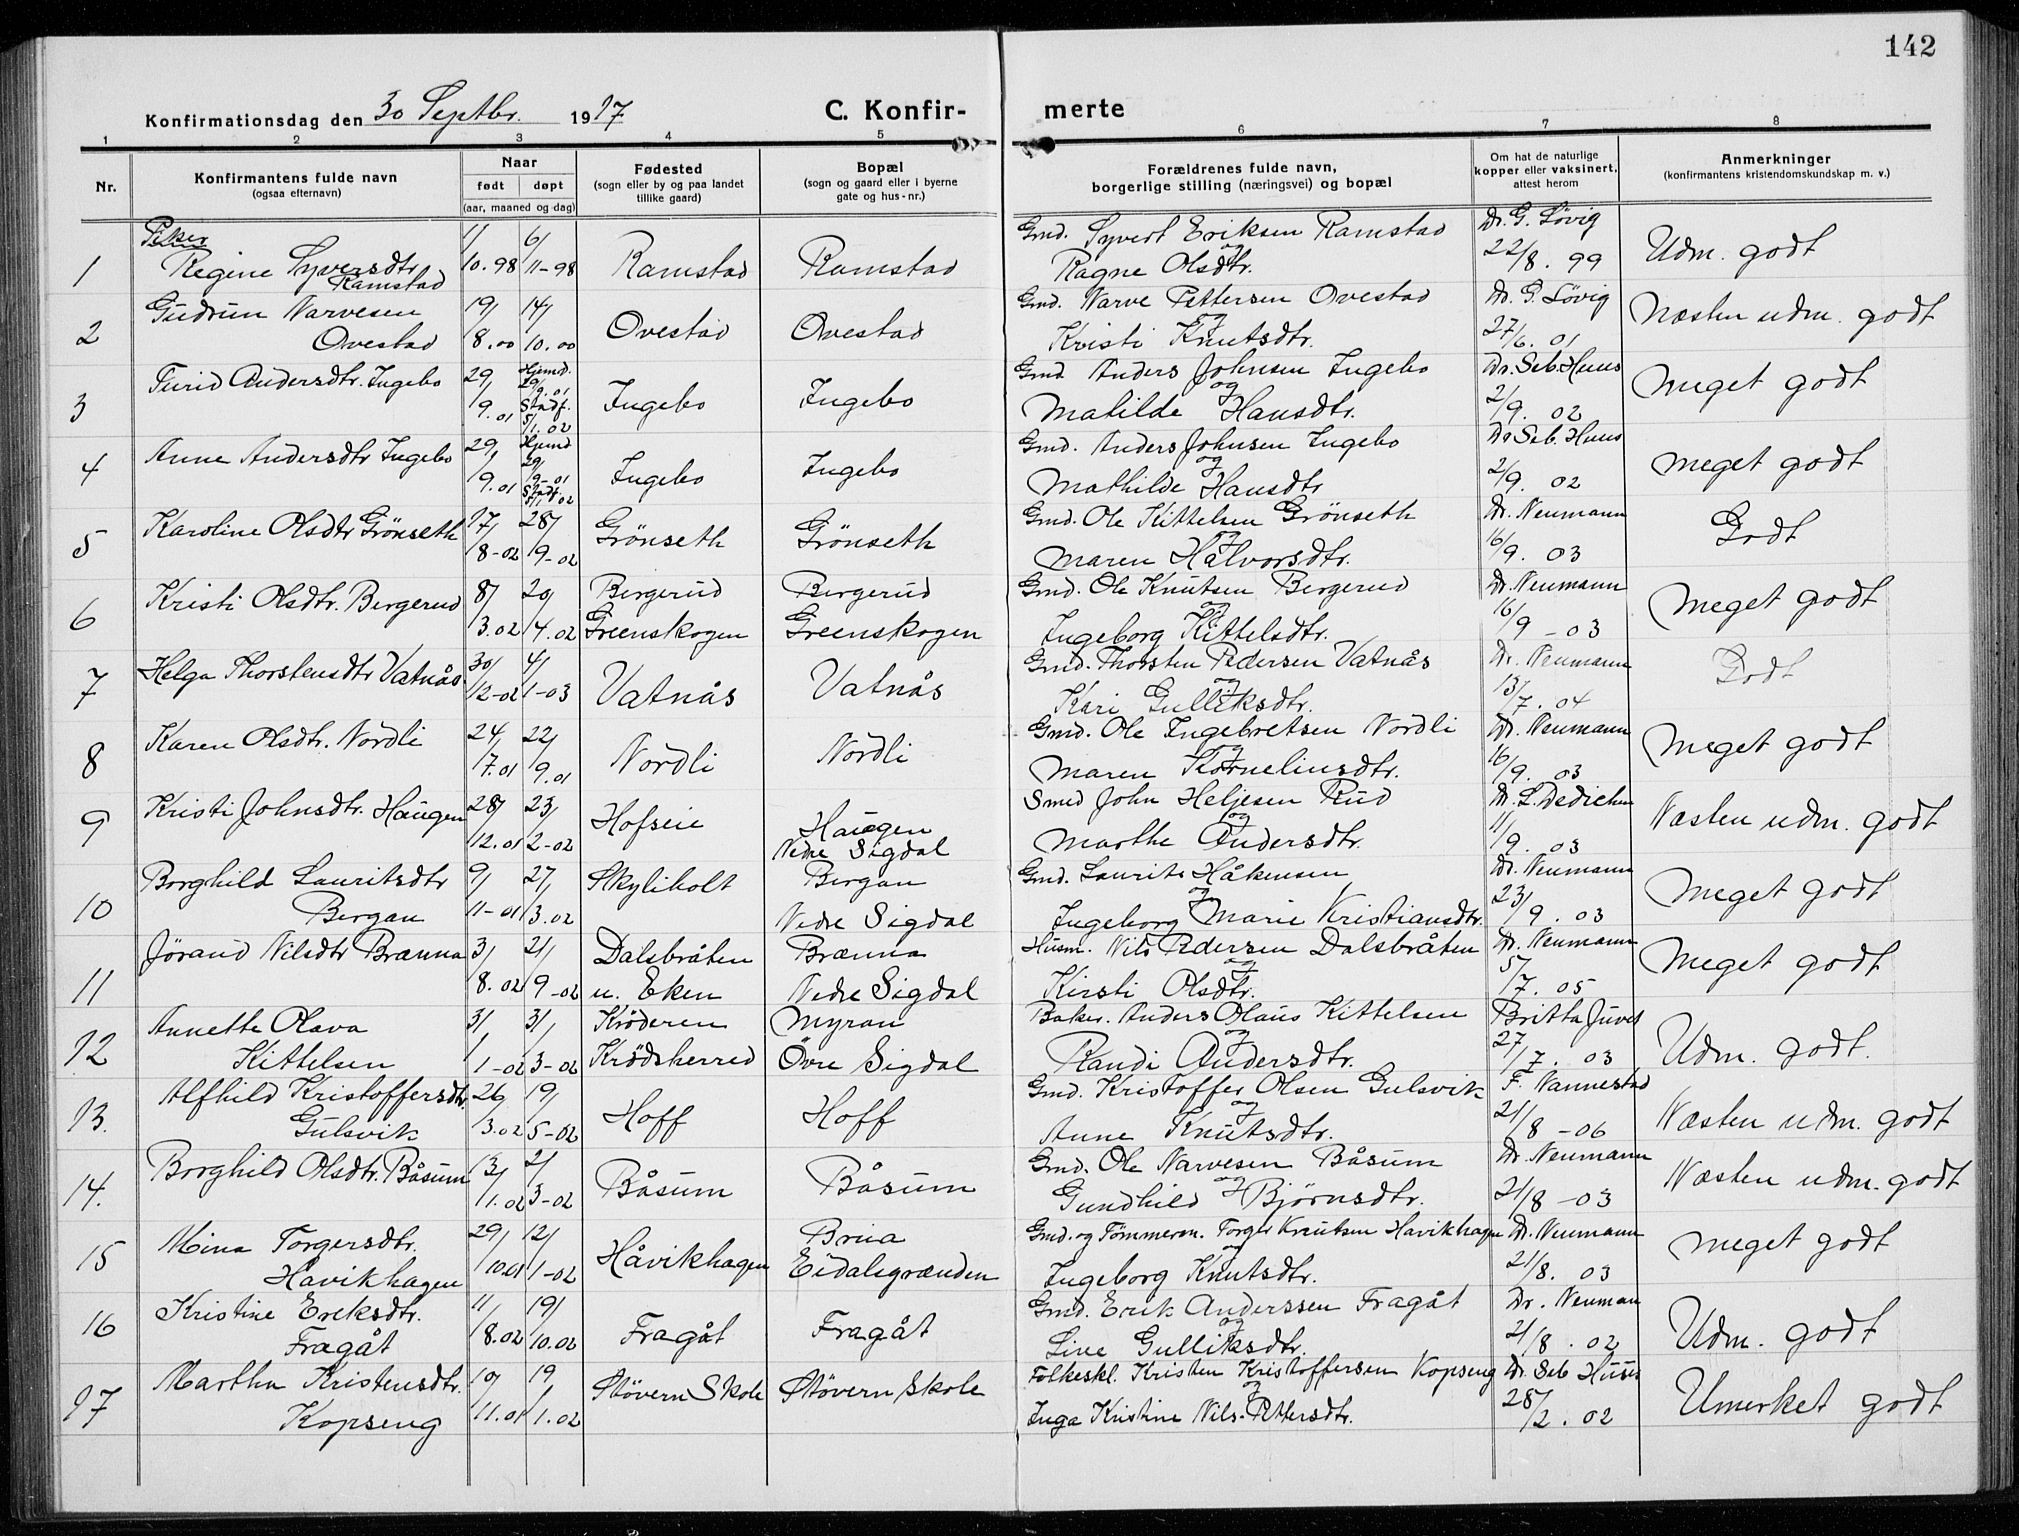 142
Konfirmationsdag den 30 Septbr. 1917
C. Konfir- merte
1 2 3 4 5 6 7 8
Nr.
Konfirmantens fulde navn
(ogsaa efternavn)
Naar
født døpt
(aar, maaned og dag)
Fødested
(sogn eller by og paa landet
tillike gaard)
Bopæl
(sogn og gaard eller i byerne
gate og hus-nr.)
Forældrenes fulde navn,
borgerlige stilling (næringsvei) og bopæl
Om hat de naturlige
kopper eller vaksinert,
attest herom
Anmerkninger
(konfirmantens kristendomskundskap m. v.)
Piker
1 Regine Syversdtr. Ramstad 1/10.98 6/11-98 Ramstad Ramstad Gmd. Syvert Eriksen Ramstad og Ragne Olsdtr. Dr. G. Lövig 22/8. 99 Udm. godt
2 Gudrun Narvesen Ovestad 19/8.00 14/10.00 Ovestad Ovestad Gmd. Narve Pettersen Ovestad og Kristi Knutsdtr. Dr. G. Lövig 27/6. 01 Næsten udm. godt
3 Turid Andersdtr. Ingebo 29/9.01 Hjemd. 29/9.01 Stadf. 5/1.02 Ingebo Ingebo Gmd. Anders Johnsen Ingebo og Mathilde Hansdtr. Dr. Seb. Huus 2/9. 02 Meget godt
4 Anne Andersdtr Ingebo 29/9.01 Hjemd 29/9-01 Stadf. 5/1 02 Ingebo Ingebo Gmd. Anders Johnsen Ingebo og Mathilde Hansdtr Dr Seb. Huus 2/9. 02 Meget godt
5 Karoline Olsdtr Grönseth 17/8-02 28/9-02 Grönseth Grönseth Gmd. Ole Kittelsen Grönseth og Maren Halvorsdtr. Dr. Neumann 16/9. 03 Godt
6 Kristi Olsdtr. Bergerud 8/3.02 20/4.02 Bergerud Greenskogen Bergerud Greenskogen Gmd. Ole Knutsen Bergerud og Ingeborg Kittelsdtr. Dr. Neumann 16/9 - 03 Meget godt
7 Helga Thorstensdtr Vatnås 30/12-02 4/1-03 Vatnås Vatnås Gmd. Thorsten Pedersen Vatnås og Kari Gulliksdtr. Dr. Neumann 13/7. 04 Godt
8 Karen Olsdtr. Nordli 24/7.01 22/9.01 Nordli Nordli Gmd. Ole Ingebretsen Nordli og Maren Korneliusdtr. Dr. Neumann 16/9. 03 Meget godt
9 Kristi Johnsdtr. Haugen 28/12.01 23/2-02 Hofseie Haugen Nedre Sigdal Smed John Heljesen Rud og Marthe Andersdtr. Dr. L. Dedichen 11/9. 03 Næsten udm. godt
10 Borghild Lauritsdtr Bergan 9/11-01 27/3.02 Skyliholt Bergan Nedre Sigdal Gmd. Laurits Håkensen og Ingeborg Marie Kristiansdtr. Dr. Neumann 23/9. 03 Meget godt
11 Jörand Nilsdtr Brænna 3/8. 02 21/9-02 Dalsbråten u. Eken Brænna Nedre Sigdal Husm. Nils Pedersen Dalsbråten og Kirsti Olsdtr. Dr. Neumann 5/7. 05 Meget godt
12 Annette Olava Kittelsen 31/1-02 31/3-02 Kröderen Krødsherred Myran Övre Sigdal Baker. Anders Olaus Kittelsen og Randi Andersdtr. Britta Juvet 27/7. 03 Udm. godt.
13. Alfhild Kristoffersdtr. Gulsvik 26/3.02 19/5-02 Hoff Hoff Gmd. Kristoffer Olsen Gulsvik og Anne Knutsdtr. F. Nannestad 21/8 - 06 Næsten udm. godt
14. Borghild Olsdtr. Båsum 13/1.02 2/3-02 Båsum Båsum Gmd. Ole Narvesen Båsum og Gundhild Björnsdtr. Dr. Neumann 21/8 - 03 Næsten udm. godt
15 Mina Torgersdtr. Havikhagen 29/10.01 12/1-02 Håvikhagen Brua Eidalsgrænden Gmd. og Tömmerm. Torger Knutsen Havikhagen og Ingeborg Knutsdtr. Dr. Neumann 21/8. 03 Meget godt
16 Kristine Eriksdtr. Fragåt 11/8.02 19/10.02 Fragåt Fragåt Gmd. Erik Anderssen Fragåt og Live Gulliksdtr. Dr. Neuman 21/8. 02 Udm. godt
17 Martha Kristensdtr. Kopseng 10/11.01 19/1.02 Støvern Skole Støvern Skole Folkeskl. Kristen Kristoffersen Kopseng og Inga Kristine Nils-Pettersdtr. Dr. Seb Huus 28/2. 02 Umerket godt